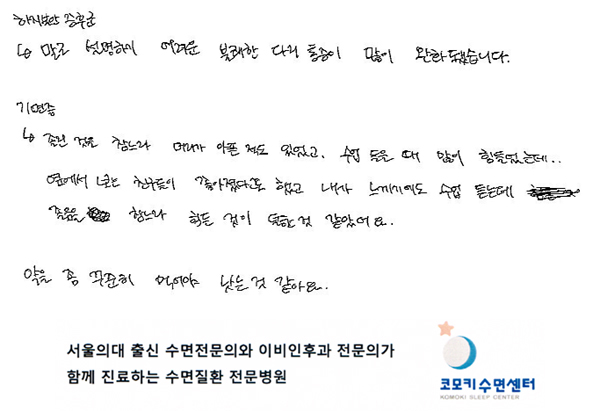 하지불안 증후군
↳ 말로 설명하기 어려운 불쾌한 다리 통증이 많이 완화됐습니다.
기면증
↳ 졸린 것을 참느라 머리가 아픈 적도 있었고, 수업 들을 때 많이 힘들었는데..
옆에서 보는 친구들이 좋아졌다고도 했고 내가 느끼기에도 수업 듣는데
졸음을 참느라 힘든 것이 덜한 것 같았어요.
약을 좀 꾸준히 먹어야 낫는 것 같아요.
서울의대 출신 수면전문의와 이비인후과 전문의가
함께 진료하는 수면질환 전문병원
코모키수면센터
KOMOKI SLEEP CENTER